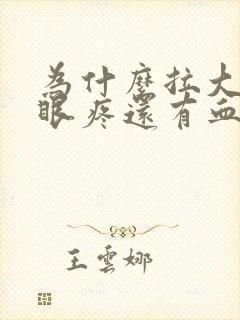 為什麼拉大
眼疼還有血
王雲娜